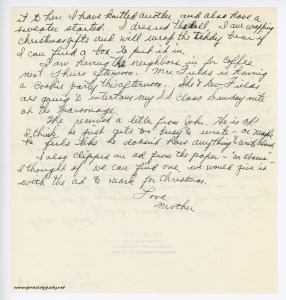 it to her. I have knitted another and also have a
sweater started. I dressed the doll, I am wrapping
Christmas gifts and will wrap the teddy bear if
I can find a box to put it in.
I am having the neighbors in for coffee
next Thurs afternoon. Mrs Fields is having
a cookie party this afternoon. She & Mr Fields
are going to entertain my SS class Sunday nite
at the parsonage.
We received a letter from John. He is OK
I think he just gets too busy to write - or maybe
he feels like he doesn't have anything to write about.
I also clipped an ad from the paper - "or above" -
I thought if we can find one we would give it
with the ad to mark for Christmas.
Love
Mother
www.genealogylady.net